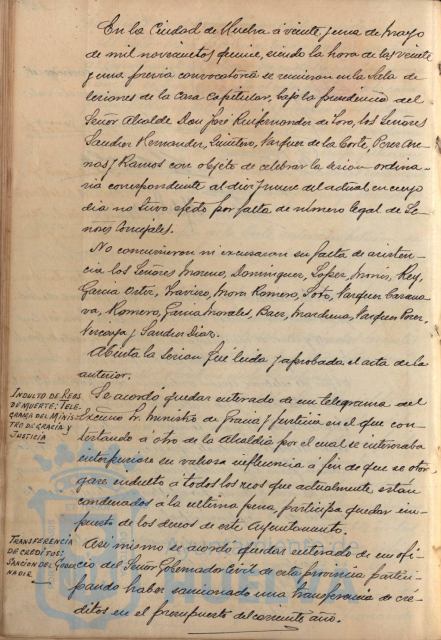 En la Ciudad de Huelva á veinte y uno de mayo
de mil novecientos quince, siendo la hora de las veinte
y una previa convocatoria se reunieron en la Sala de
sesiones de la Casa Capitular, bajo la presidencia del
Señor Alcalde Don José de Toro, los Señores
Sanchez Hernandez, Quintero, Vazquez de la Corte, Perez
y Ramos con objeto de celebrar la sesion ordina-
ria correspondiente al diez y nueve del actual en cuyo
dia no tuvo efecto por falta de número legal de Se-
ñores Concejales.
No concurrieron ni excusaron su falta de asisten-
cia los Señores Moreno, Dominguez, Lopez, Rey,
Garcia Ortiz, Traviero, Mora Romero, Soto, Vazquez
Romero, Garcia Morales, Baez, Marchena, Vazquez Perez,
y Sanchez Diaz.
Abierta la sesion fué leida y aprobada el acta de la
anterior.
INDULTO DE REOS
DE MUERTE: TELE-
GRAMA DEL MINIS-
TRO DE GRACIA Y
JUSTICIA
Se acordó quedar enterado de un telegrama del
Excmo Sr. Ministro de Gracia y Justicia en el que con-
testando á otro de la Alcaldia por el cual se interesaba
interpusiera su valiosa influencia á fin de que se otor-
gare indulto á todos los reos que actualmente estan
condenados á la ultima pena, participa quedar im-
puesto de los deseos de este Ayuntamiento.
TRANSFERENCIA
DE CREDITOS:
SANCION DEL GOBER-
NADOR
Asi mismo se acordo quedar enterado de un ofi-
cio del Señor Gobernador Civil de esta provincia partici-
pando haber sancionado una transferencia de cré-
ditos en el presupuesto del corriente año.